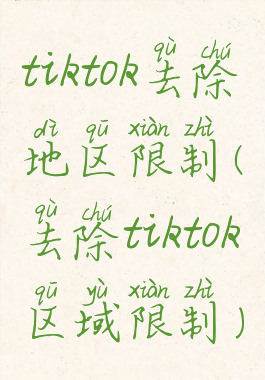 qù chú
tiktok去除
dì qū xiàn zhì
地区限制(
qù chú
去除tiktok
qū yù xiàn zhì
区域限制)